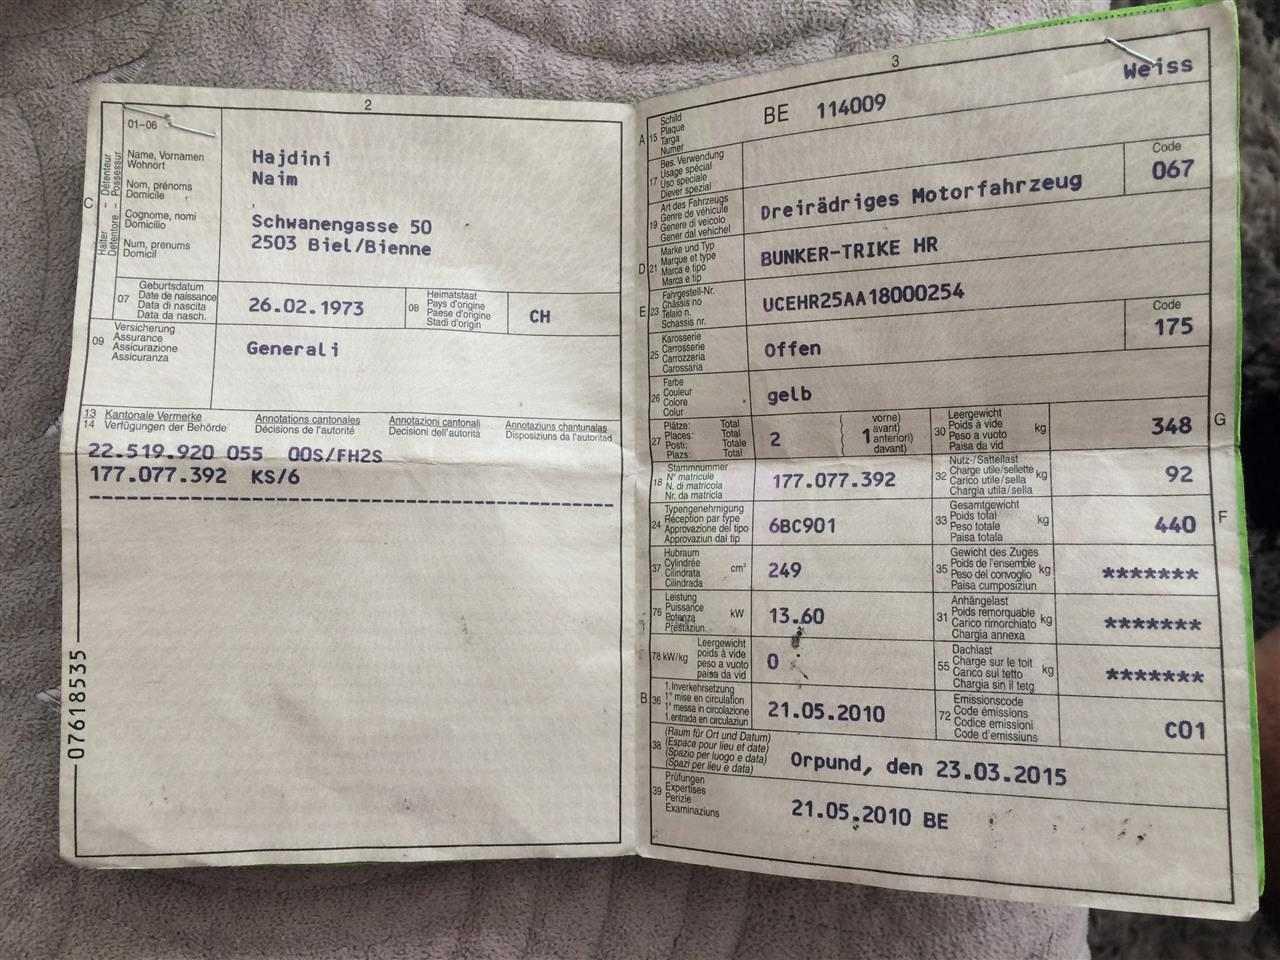 2
01-06
Halter - Détenteur
Detentore - Possessur
C
Name, Vornamen
Wohnort
Nom, prénoms
Domicile
Cognome, nomi
Domicilio
Num, prenums
Domicil
Hajdini
Naim
Schwanengasse 50
2503 Biel/Bienne
07
Geburtsdatum
Date de naissance
Data di nascita
Data da nasch.
26.02.1973
08
Heimatstaat
Pays d'origine
Paese d'origine
Stadi d'origin
CH
09
Versicherung
Assurance
Assicurazione
Assicuranza
Generali
13 Kantonale Vermerke Annotations cantonales Annotazioni cantonali Annotaziuns chantunalas
14 Verfügungen der Behörde Décisions de l'autorité Decisioni dell'autorità Disposiziuns da l'autoritad
22.519.920 055 00S/FH2S
177.077.392 KS/6
07618535
3
Weiss
A 15
Schild
Plaque
Targa
Numer
BE 114009
17
Bes. Verwendung
Usage spécial
Uso speciale
Diever spezial
19
Art des Fahrzeugs
Genre de véhicule
Genere di veicolo
Gener dal vehichel
Dreirädriges Motorfahrzeug
Code
067
D 21
Marke und Typ
Marque et type
Marca e tipo
Marca e tip
BUNKER-TRIKE HR
E 23
Fahrgestell-Nr.
Châssis no
Telaio n.
Schassis nr.
UCEHR25AA18000254
25
Karosserie
Carrosserie
Carrozzeria
Carossaria
Offen
Code
175
26
Farbe
Couleur
Colore
Colur
gelb
27
Plätze: Total
Places: Total
Posti: Totale
Plazs: Total
2
vorne)
avant)
1 anteriori)
davant)
30
Leergewicht
Poids à vide
Peso a vuoto
Paisa da vid
kg
348
G
18
Stammnummer
N° matricule
N. di matricola
Nr. da matricla
177.077.392
32
Nutz-/Sattellast
Charge utile/sellette
Carico utile/sella
Chargia utila/sella
kg
92
24
Typengenehmigung
Réception par type
Approvazione del tipo
Approvaziun dal tip
6BC901
33
Gesamtgewicht
Poids total
Peso totale
Paisa totala
kg
440
F
37
Hubraum
Cylindrée
Cilindrata
Cilindrada
cm³
249
35
Gewicht des Zuges
Poids de l'ensemble
Peso del convoglio
Paisa cumposiziun
kg
*******
76
Leistung
Puissance
Potenza
Prestaziun
kW
13.60
31
Anhängelast
Poids remorquable
Carico rimorchiato
Chargia annexa
kg
*******
78 kW/kg
Leergewicht
poids à vide
peso a vuoto
paisa da vid
0
55
Dachlast
Charge sur le toit
Carico sul tetto
Chargia sin il tetg
kg
*******
B 36
1. Inverkehrsetzung
1re mise en circulation
1a messa in circolazione
1. entrada en circulaziun
21.05.2010
72
Emissionscode
Code émissions
Codice emissioni
Code d'emissiuns
C01
38
(Raum für Ort und Datum)
(Espace pour lieu et date)
(Spazio per luogo e data)
(Spazi per lieu e data)
Orpund, den 23.03.2015
39
Prüfungen
Expertises
Perizie
Examinaziuns
21.05.2010 BE